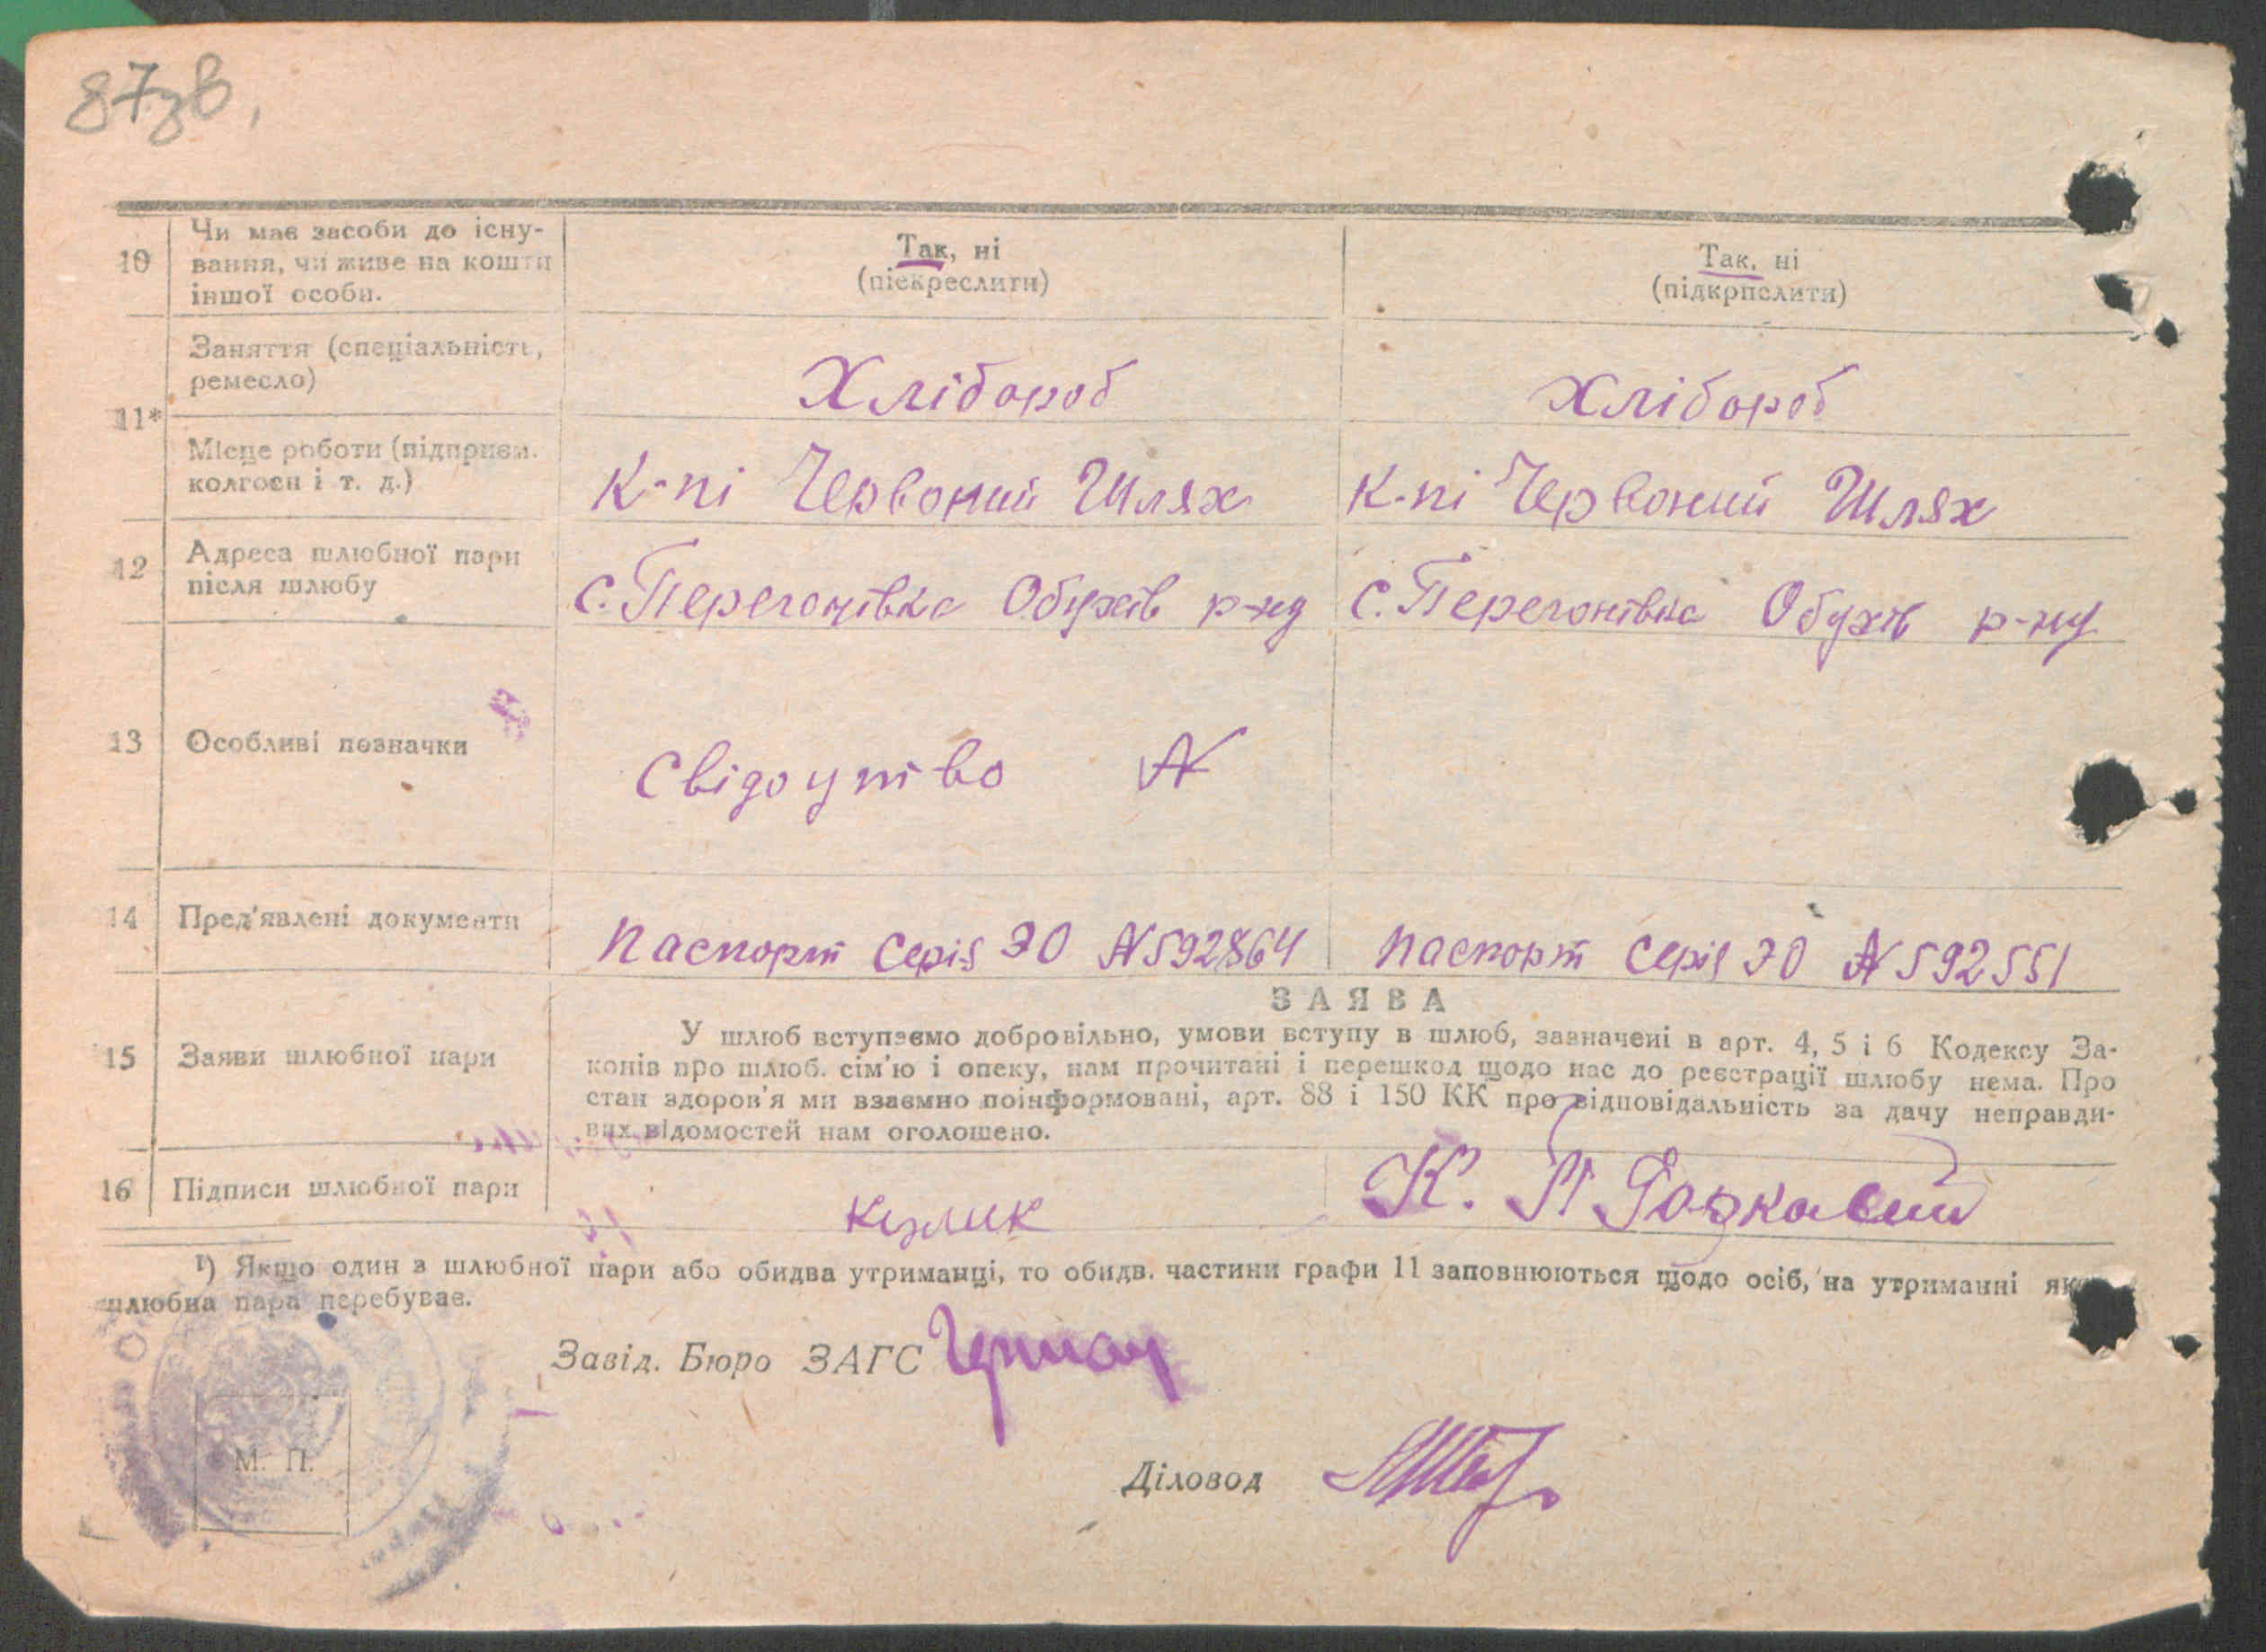 87зв,
10 Чи має засоби до існу-
вання, чи живе на кошти
іншої особи.
Так, ні
(піекреслити)
Так, ні
(підкрпслити)
11*
Заняття (спеціальність,
ремесло)
Хлібороб
Хлібороб
Місце роботи (підприєм.
колгосп і т. д.)
К-пі Червоний Шлях
К-пі Червоний Шлях
12 Адреса шлюбної пари
після шлюбу
с. Перегонівка Обухів р-ну
с. Перегонівка Обухів р-ну
13 Особливі позначки
Свідоцтво N
14 Пред'явлені документи
Паспорт Серія ЭО N 592864
Паспорт Серія ЭО N 592551
15 Заяви шлюбної пари
ЗАЯВА
У шлюб вступаємо добровільно, умови вступу в шлюб, зазначені в арт. 4, 5 і 6 Кодексу За-
конів про шлюб. сім'ю і опеку, нам прочитані і перешкод щодо нас до реєстрації шлюбу нема. Про
стан здоров'я ми взаємно поінформовані, арт. 88 і 150 КК про відповідальність за дачу неправди-
вих відомостей нам оголошено.
16 Підписи шлюбної пари
Кулик
К. П.
¹) Якщо один з шлюбної пари або обидва утриманці, то обидв. частини графи 11 заповнюються щодо осіб, на утриманні як
шлюбна пара перебуває.
Завід. Бюро ЗАГС
Діловод
М. П.